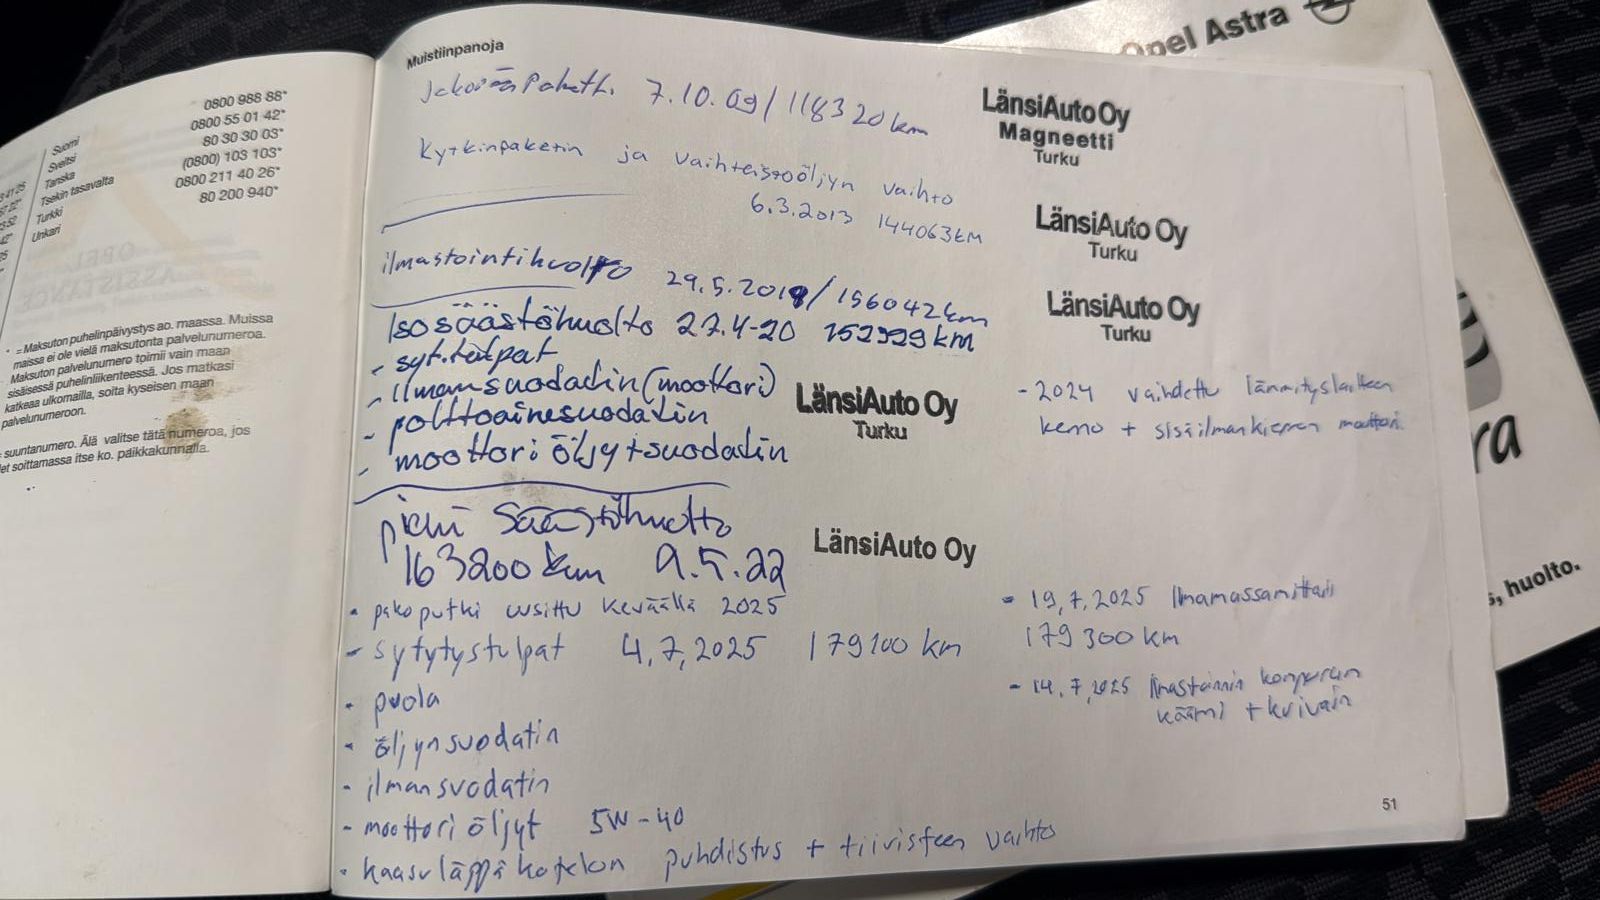 41 25
Suomi 0800 988 88*
Sveitsi 0800 55 01 42*
Tanska 80 30 30 03*
Tsekin tasavalta (0800) 103 103*
Turkki 0800 211 40 26*
Unkari 80 200 940*
OPEL
ASSISTANCE
* = Maksuton puhelinpäivystys ao. maassa. Muissa
maissa ei ole vielä maksutonta palvelunumeroa.
Maksuton palvelunumero toimii vain maan
sisäisessä puhelinliikenteessä. Jos matkasi
katkeaa ulkomailla, soita kyseisen maan
palvelunumeroon.
suuntanumero. Älä valitse tätä numeroa, jos
soittamassa itse ko. paikkakunnalla.
Muistiinpanoja
Jakopääpaketti 7.10.09/118320 km
LänsiAuto Oy
Magneetti
Turku
Kytkinpaketin ja vaihteistoöljyn vaihto
6.3.2013 144063km
LänsiAuto Oy
Turku
ilmastointihuolto 29.5.2019/156042km
LänsiAuto Oy
Turku
Iso säästöhuolto 27.4-20 km
- syt.tulpat
- Ilmansuodatin (moottori)
- polttoainesuodatin
- moottori öljy+suodatin
LänsiAuto Oy
Turku
- 2024 vaihdettu lämmityslaitteen
kenno + sisäilmankierron moottori
pieni säästöhuolto
163200 km 9.5.22
LänsiAuto Oy
- pakoputki uusittu keväällä 2025
- sytytystulpat 4.7.2025 179100 km
- puola
- öljynsuodatin
- ilmansuodatin
- moottori öljyt 5W-40
- kaasuläppäkotelon puhdistus + tiivisteen vaihto
- 19.7.2025 Ilmamassamittari
179300 km
- 14.7.2025 Ilmastoinnin kompuran
käämi +
51
Opel Astra
ra
s, huolto.